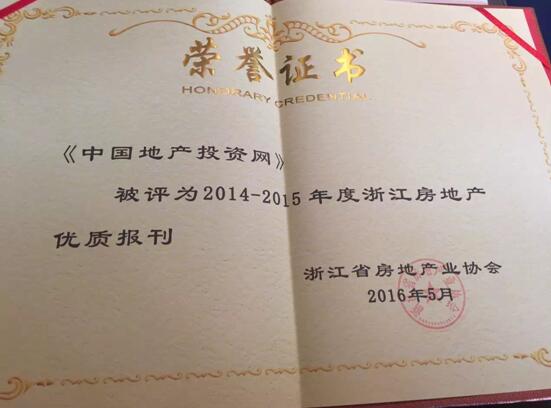 荣誉证书
HONORARY CREDENTIAL
《中国地产投资网》
被评为2014-2015年度浙江房地产
优质报刊
浙江省房地产业协会
2016年5月